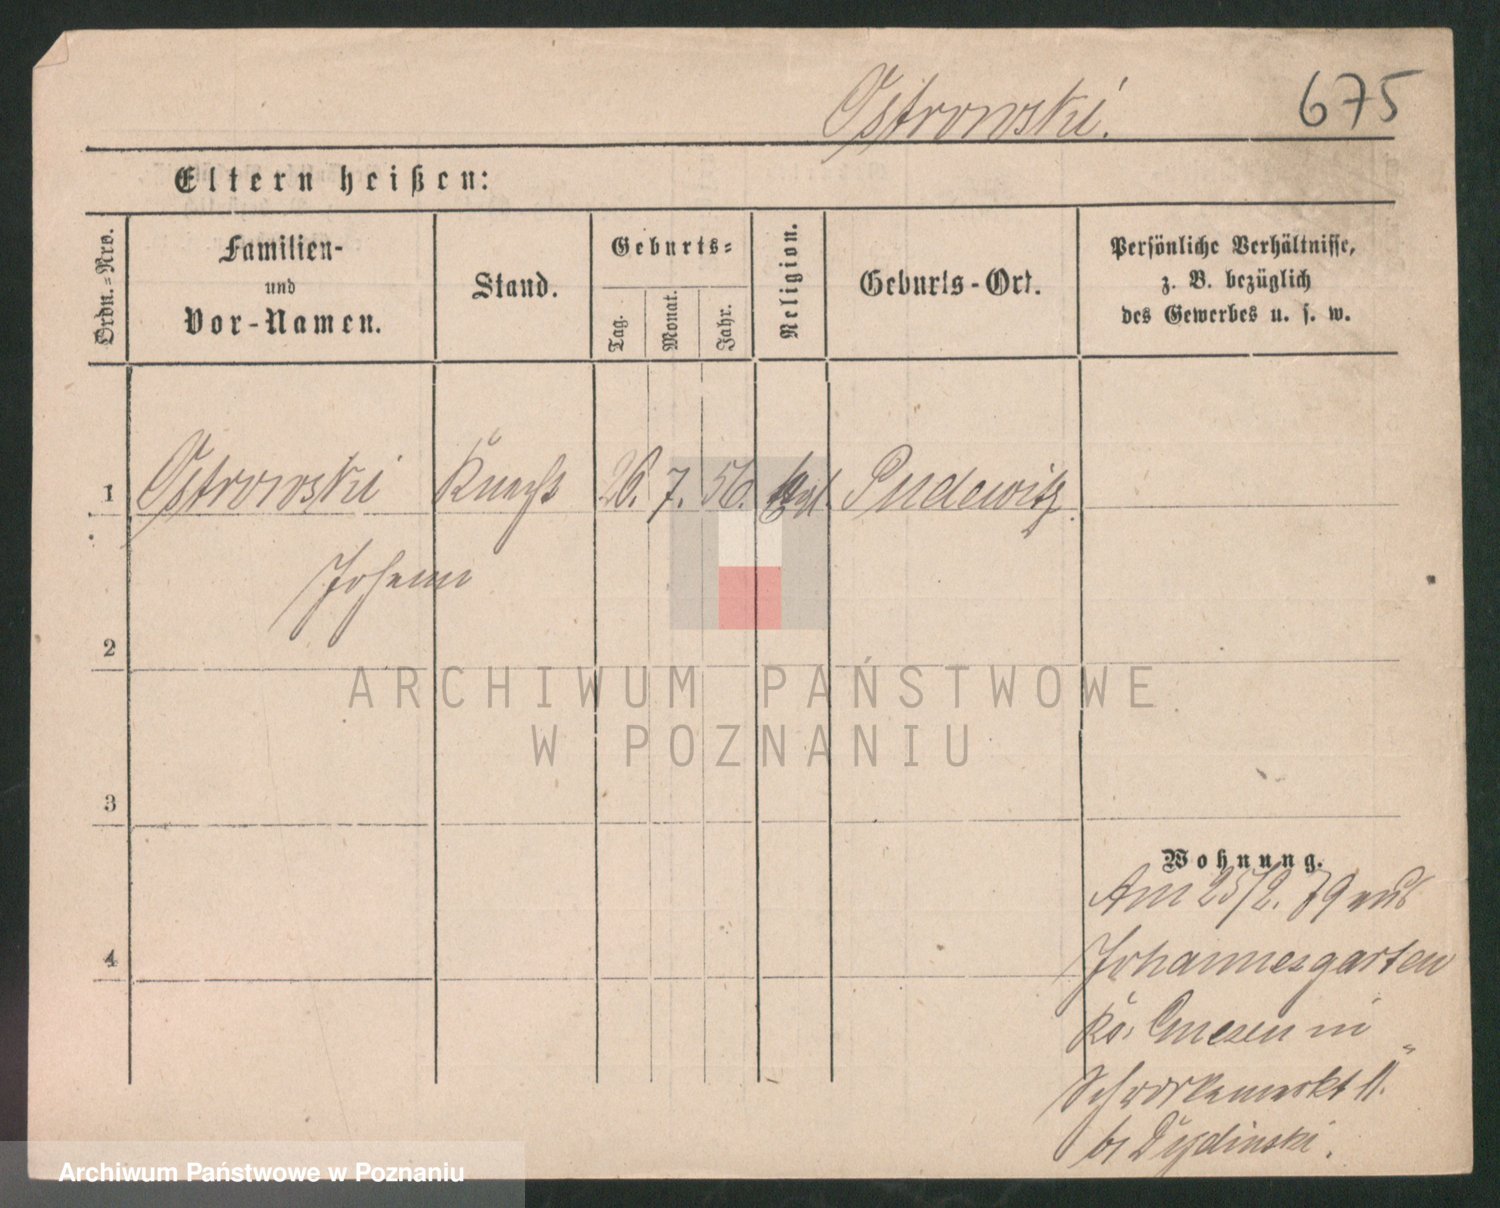 Ostrowski.
675
Eltern heißen:
Ordn.=Nro.
Familien-
und
Vor-Namen.
Stand.
Geburts=
Tag.
Monat.
Jahr.
Religion.
Geburts-Ort.
Persönliche Verhältnisse,
z. B. bezüglich
des Gewerbes u. s. w.
1
Ostrowski Knecht 26. 7. 56. Pudewitz
Johann
2
ARCHIWUM PAŃSTWOWE
W POZNANIU
3
Wohnung.
Am 25/2. 79 aus
Johannesgarten
Kr. Gnesen in
11.
b/
4
Archiwum Państwowe w Poznaniu